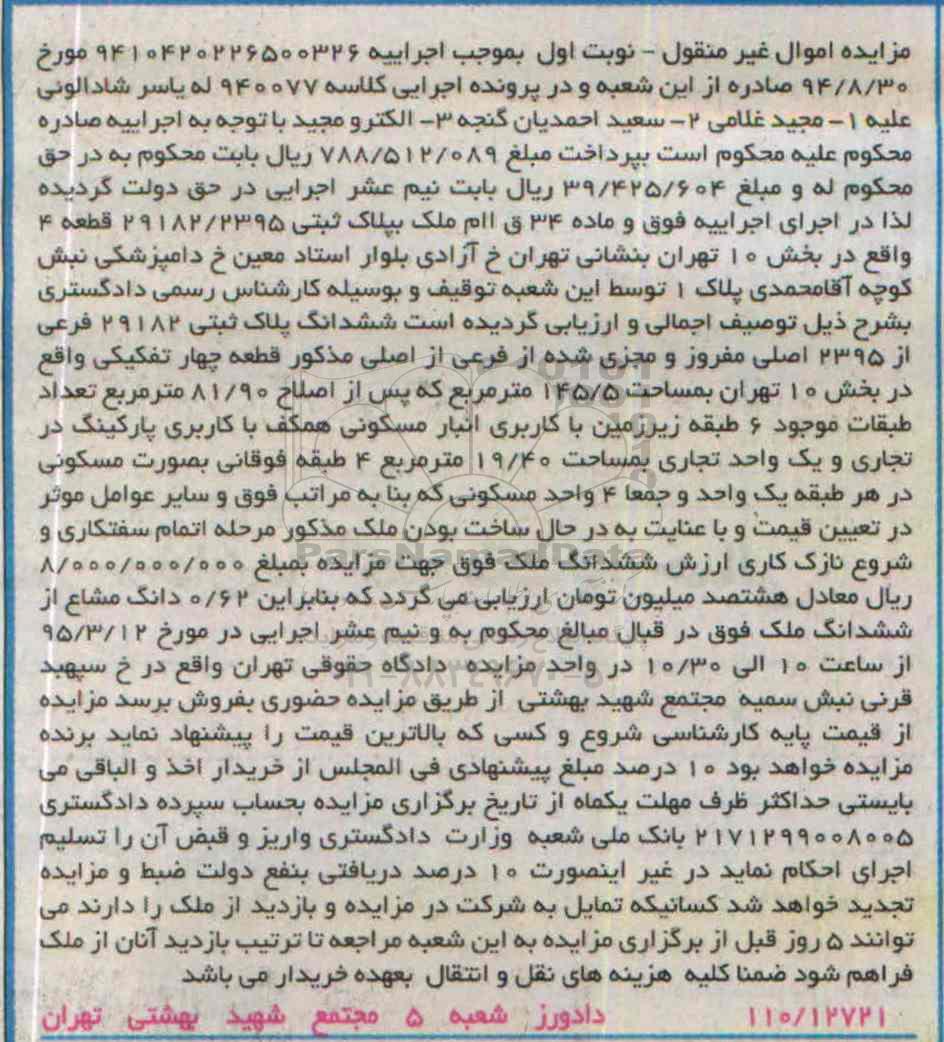 مزایده اموال غیر منقول - نوبت اول بموجب اجراییه ۹۴۱۰۴۲۰۲۲۶۵۰۰۳۲۶ مورخ
۹۴/۸/۳۰ صادره از این شعبه و در پرونده اجرایی کلاسه ۹۴۰۰۷۷ له یاسر شادالونی
علیه ۱- مجید غلامی ۲- سعید احمدیان گنجه ۳- الکترو مجید با توجه به اجراییه صادره
محکوم علیه محکوم است بپرداخت مبلغ ۷۸۸/۵۱۲/۰۸۹ ریال بابت محکوم به در حق
محکوم له و مبلغ ۳۹/۴۲۵/۶۰۴ ریال بابت نیم عشر اجرایی در حق دولت گردیده
لذا در اجرای اجراییه فوق و ماده ۳۴ ق اام ملک بپلاک ثبتی ۲۹۱۸۲/۲۳۹۵ قطعه ۴
واقع در بخش ۱۰ تهران بنشانی تهران خ آزادی بلوار استاد معین خ دامپزشکی نبش
کوچه آقامحمدی پلاک ۱ توسط این شعبه توقیف و بوسیله کارشناس رسمی دادگستری
بشرح ذیل توصیف اجمالی و ارزیابی گردیده است ششدانگ پلاک ثبتی ۲۹۱۸۲ فرعی
از ۲۳۹۵ اصلی مفروز و مجزی شده از فرعی از اصلی مذکور قطعه چهار تفکیکی واقع
در بخش ۱۰ تهران بمساحت ۱۴۵/۵ مترمربع که پس از اصلاح ۸۱/۹۰ مترمربع تعداد
طبقات موجود ۶ طبقه زیرزمین با کاربری انبار مسکونی همکف با کاربری پارکینگ در
تجاری و یک واحد تجاری بمساحت ۱۹/۴۰ مترمربع ۴ طبقه فوقانی بصورت مسکونی
در هر طبقه یک واحد و جمعا ۴ واحد مسکونی که بنا به مراتب فوق و سایر عوامل موثر
در تعیین قیمت و با عنایت به در حال ساخت بودن ملک مذکور مرحله اتمام سفتکاری و
شروع نازک کاری ارزش ششدانگ ملک فوق جهت مزایده بمبلغ ۸/۰۰۰/۰۰۰/۰۰۰
ریال معادل هشتصد میلیون تومان ارزیابی می گردد که بنابراین ۰/۶۲ دانگ مشاع از
ششدانگ ملک فوق در قبال مبالغ محکوم به و نیم عشر اجرایی در مورخ ۹۵/۳/۱۲
از ساعت ۱۰ الی ۱۰/۳۰ در واحد مزایده دادگاه حقوقی تهران واقع در خ سپهبد
قرنی نبش سمیه مجتمع شهید بهشتی از طریق مزایده حضوری بفروش برسد مزایده
از قیمت پایه کارشناسی شروع و کسی که بالاترین قیمت را پیشنهاد نماید برنده
مزایده خواهد بود ۱۰ درصد مبلغ پیشنهادی فی المجلس از خریدار اخذ و الباقی می
بایستی حداکثر ظرف مهلت یکماه از تاریخ برگزاری مزایده بحساب سپرده دادگستری
۲۱۷۱۲۹۹۰۰۸۰۰۵ بانک ملی شعبه وزارت دادگستری واریز و قبض آن را تسلیم
اجرای احکام نماید در غیر اینصورت ۱۰ درصد دریافتی بنفع دولت ضبط و مزایده
تجدید خواهد شد کسانیکه تمایل به شرکت در مزایده و بازدید از ملک را دارند می
توانند ۵ روز قبل از برگزاری مزایده به این شعبه مراجعه تا ترتیب بازدید آنان از ملک
فراهم شود ضمنا کلیه هزینه های نقل و انتقال بعهده خریدار می باشد
۱۱۰/۱۲۷۲۱ دادورز شعبه ۵ مجتمع شهید بهشتی تهران
ParsNamadData
۰۲۱-۸۸۳۴۹۶۷۰-۵